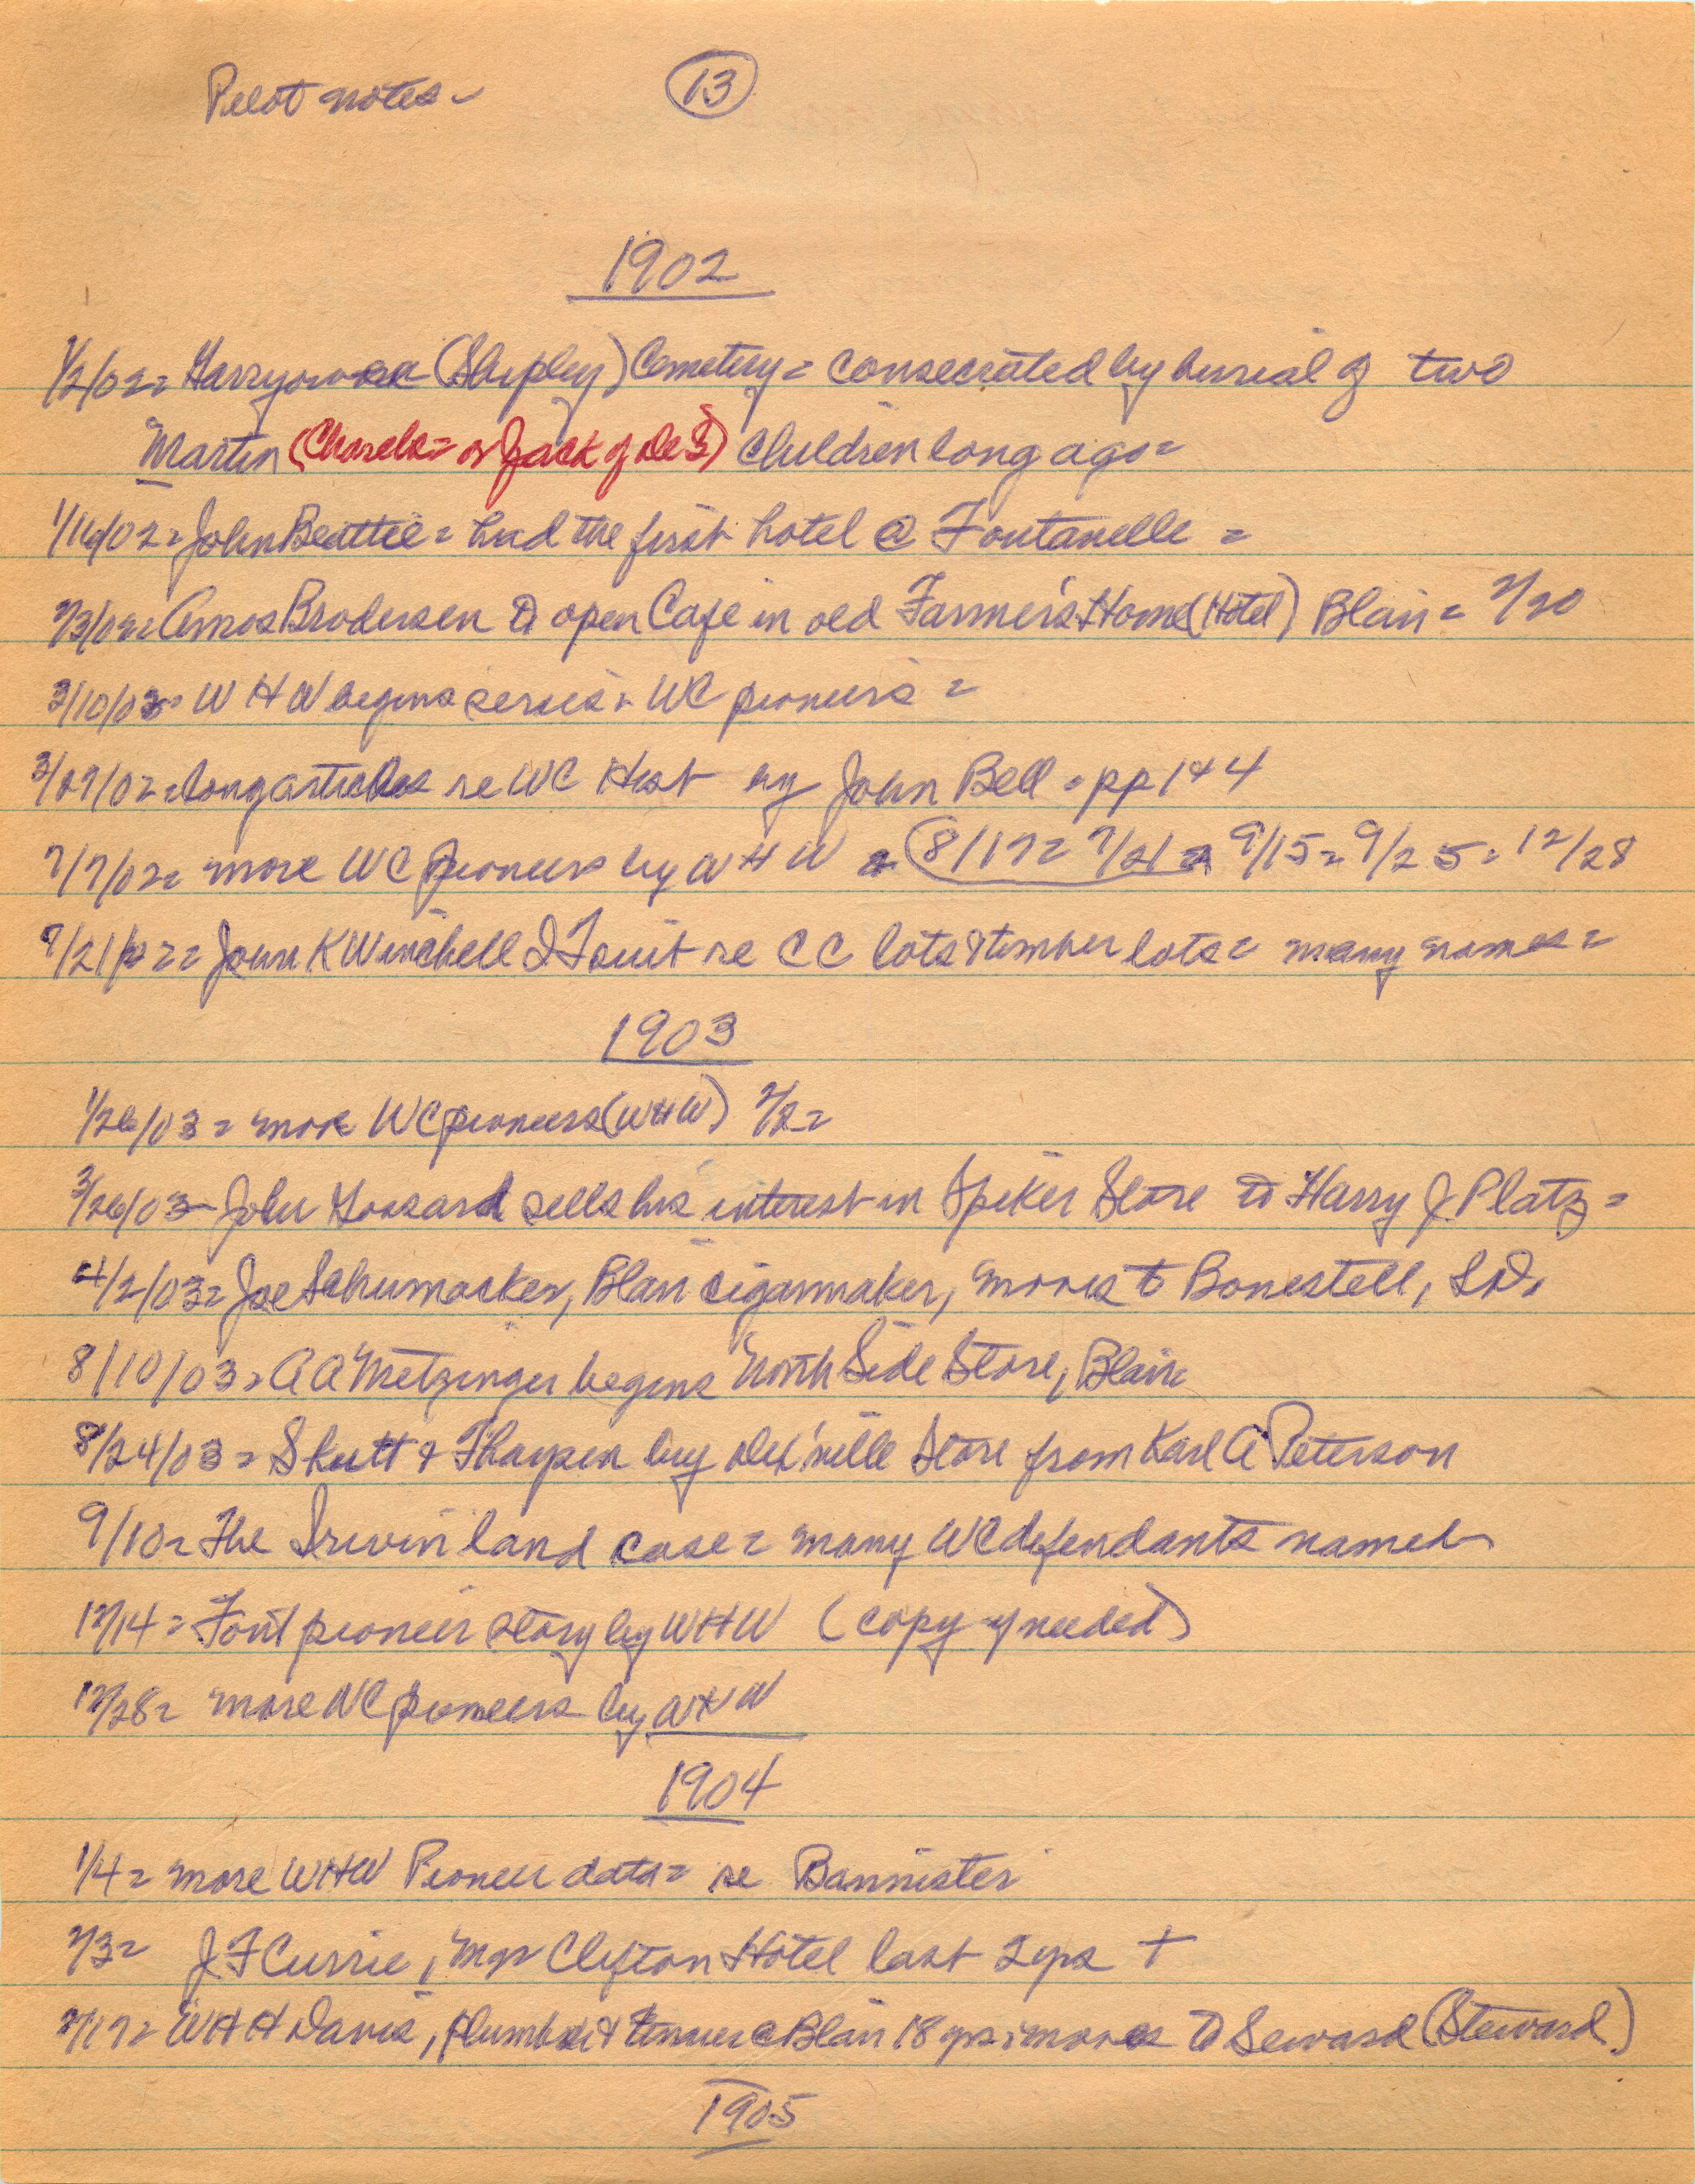 Pilot notes- 13
1902
1/2/02= (Shipley) Cemetery= consecrated by burial of two
Martin ( or Jack of DeS) children long ago=
1/16/02= John Beattie= had the first hotel @ Fontanelle =
2/3/02= Amos Brodersen to open Cafe in old Farmer's Home (Hotel) Blair= 2/20
3/10/03= WHW begins series - WC pioneers =
3/ /02= long articles re WC Hist by John Bell = pp 1 & 4
7/7/02= more WC pioneers by WHW = (8/17= 7/21= 9/15= 9/25= 12/28
7/21/02= John K Winchell & re CC lots & timber lots= many names=
1903
1/26/03= more WC pioneers (WHW) 2/2=
3/26/03- John sells his interest in Spiker Store to Harry J. Platz=
4/2/03= Joe Schumacker, Blair cigarmaker, moves to Bonestell, SD.
8/10/03= A A Metzinger begins North Side Store, Blair
8/24/03= Skutt & Thaysen buy store from Karl A Peterson
9/10= The Irwin land case= many WC defendants named
12/14= Font pioneer story by WHW (copy if needed)
12/28= more WC pioneers by WHW
1904
1/4= more WHW Pioneer data= re Bannister
2/3= J F Currie, mgr Clifton Hotel last 2 yrs +
2/17= WHH Davis, plumber & tinner @ Blair 18 yrs= moves to Seward (Steward)
1905